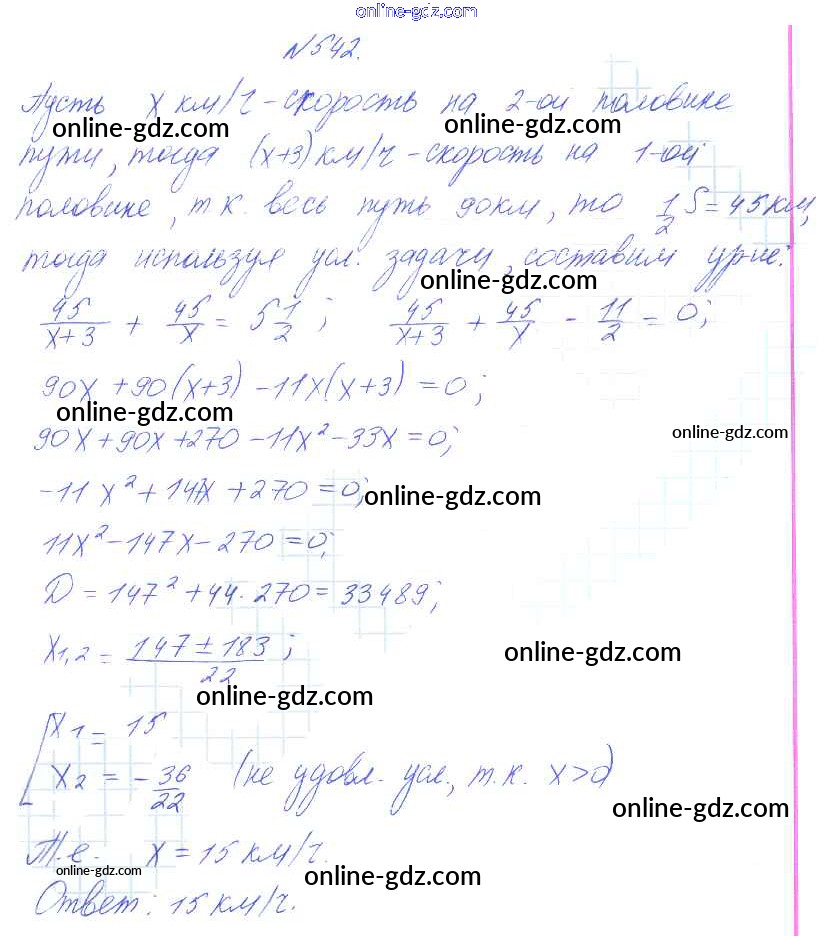 online-gdz.com
№542.
Пусть x км/ч - скорость на 2-ой половине
online-gdz.com online-gdz.com
пути, тогда (x+3) км/ч - скорость на 1-ой
половине, т.к. весь путь 90км, то 1/2 S = 45 км,
тогда используя усл. задачи, составим ур-ие:
online-gdz.com
45/(x+3) + 45/x = 5 1/2; 45/(x+3) + 45/x - 11/2 = 0;
90x + 90(x+3) - 11x(x+3) = 0;
online-gdz.com
90x + 90x + 270 - 11x² - 33x = 0;
online-gdz.com
-11x² + 147x + 270 = 0; online-gdz.com
11x² - 147x - 270 = 0;
D = 147² + 44·270 = 33489;
x1,2 = (147 ± 183)/22; online-gdz.com
online-gdz.com
[x1 = 15
x2 = -36/22 (не удовл. усл., т.к. x>0)
online-gdz.com
Т.е. x = 15 км/ч.
online-gdz.com online-gdz.com
Ответ: 15 км/ч.